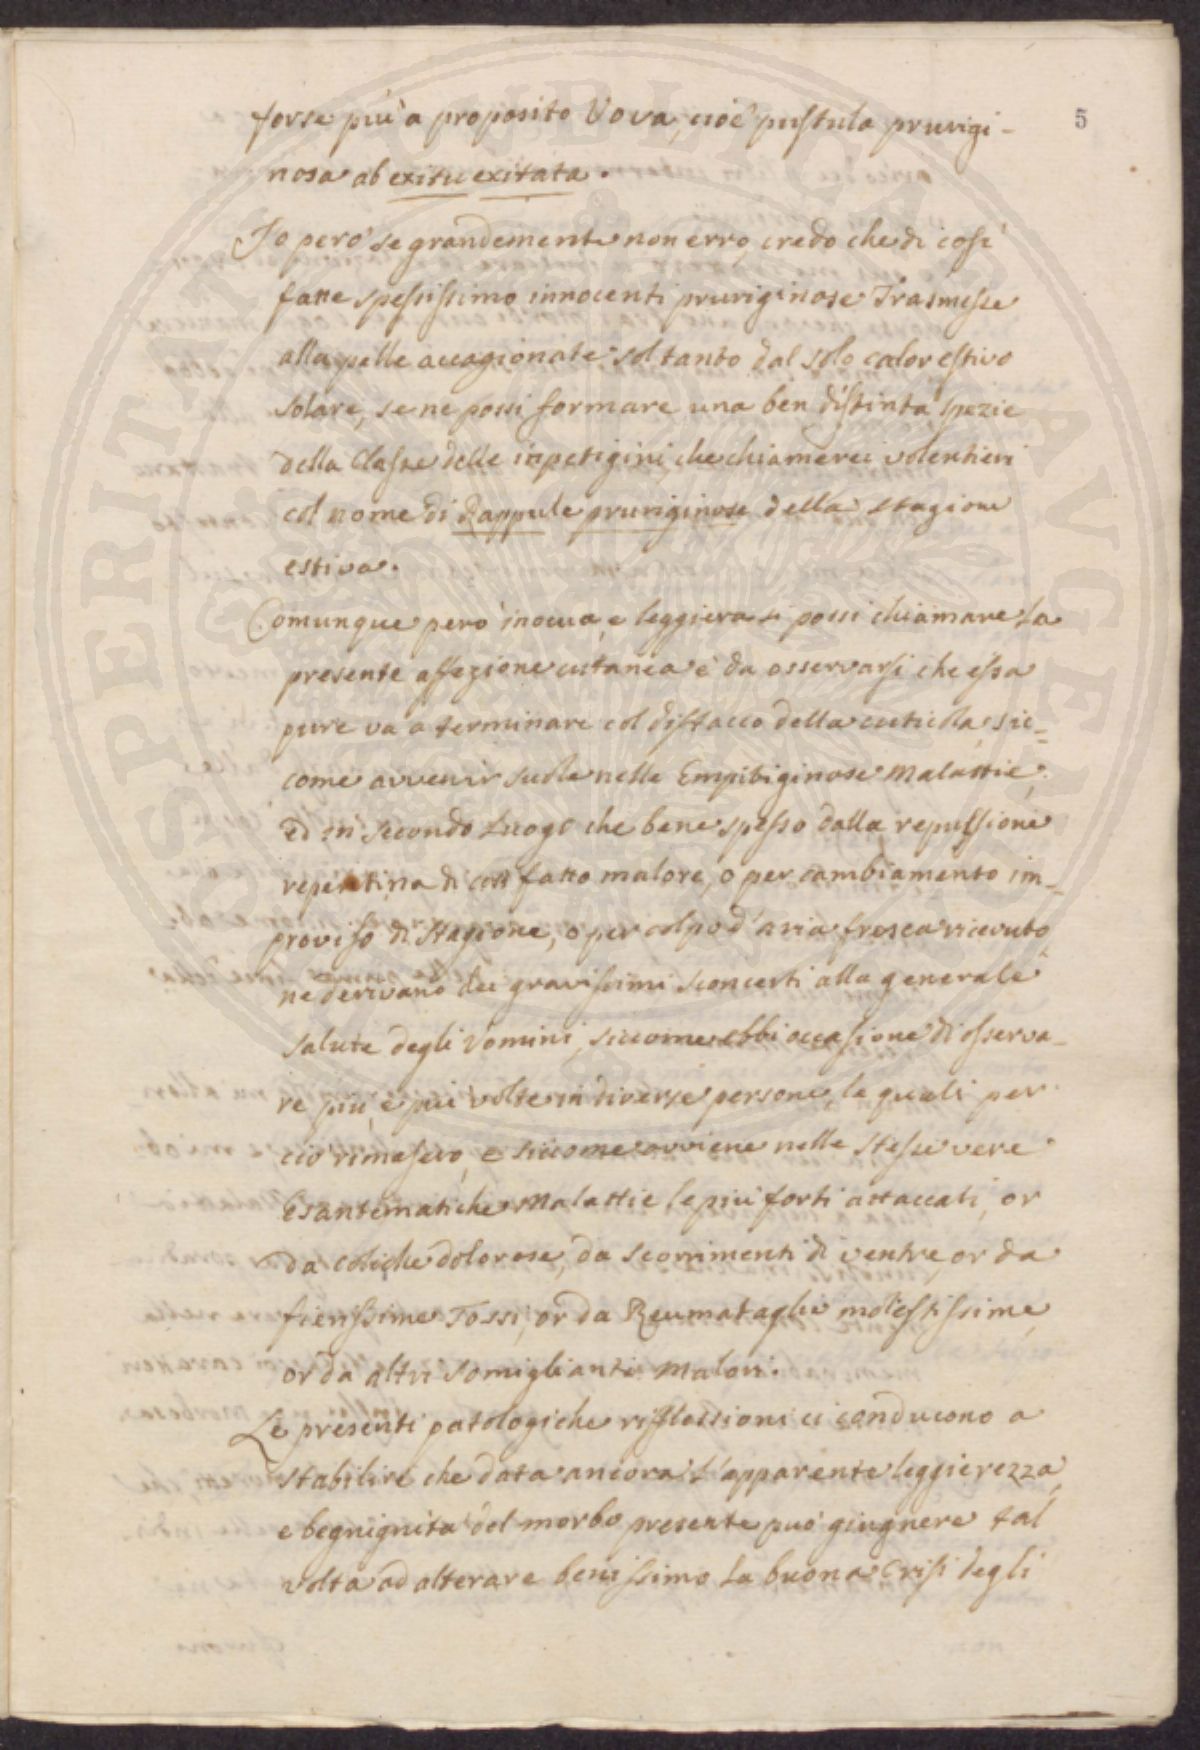 5
forse più a proposito Vova, cioè pustula prurigi-
nosa ab exitu exitata.
Io però se grandemente non erro, credo che di così
fatte spessissimo innocenti pruriginose Trasmesse
alla pelle accagionate soltanto dal solo calor estivo
solare, se ne possi formare una ben distinta spezie
della Classe delle inpetigini, che chiamerei volentieri
col nome di Pappule pruriginose della stagione
estiva.
Comunque però inocua, e leggiera si possi chiamare la
presente affezione cutanea è da osservarsi che essa
pure va a terminare col distacco della cuticula, sic=
come avvenir suole nelle Empitiginose Malattie,
Ed in secondo Luogo che bene spesso dalla repulsione
repentina di così fatto malore, o per cambiamento im=
proviso di Stagione, o per colpo d'aria fresca ricevuto
ne derivano dei gravissimi sconcerti alla generale
salute degli Uomini, siccome ebbi occasione di osserva-
re più, e più volte in diverse persone, le quali per
ciò rimasero, e siccome avviene nelle stesse vere
Esantematiche Malattie le più forti attaccati, or
da coliche dolorose, da scorrimenti di ventre, or da
fierissime Tossi, or da Reumataglie molestissime,
or da altri somiglianti Malori.
Le presenti patologiche riflessioni ci conducono a
stabilire che data ancora l'apparente leggierezza,
e begnignità del morbo presente può giugnere tal
volta ad alterare benissimo la buona Crisi degli